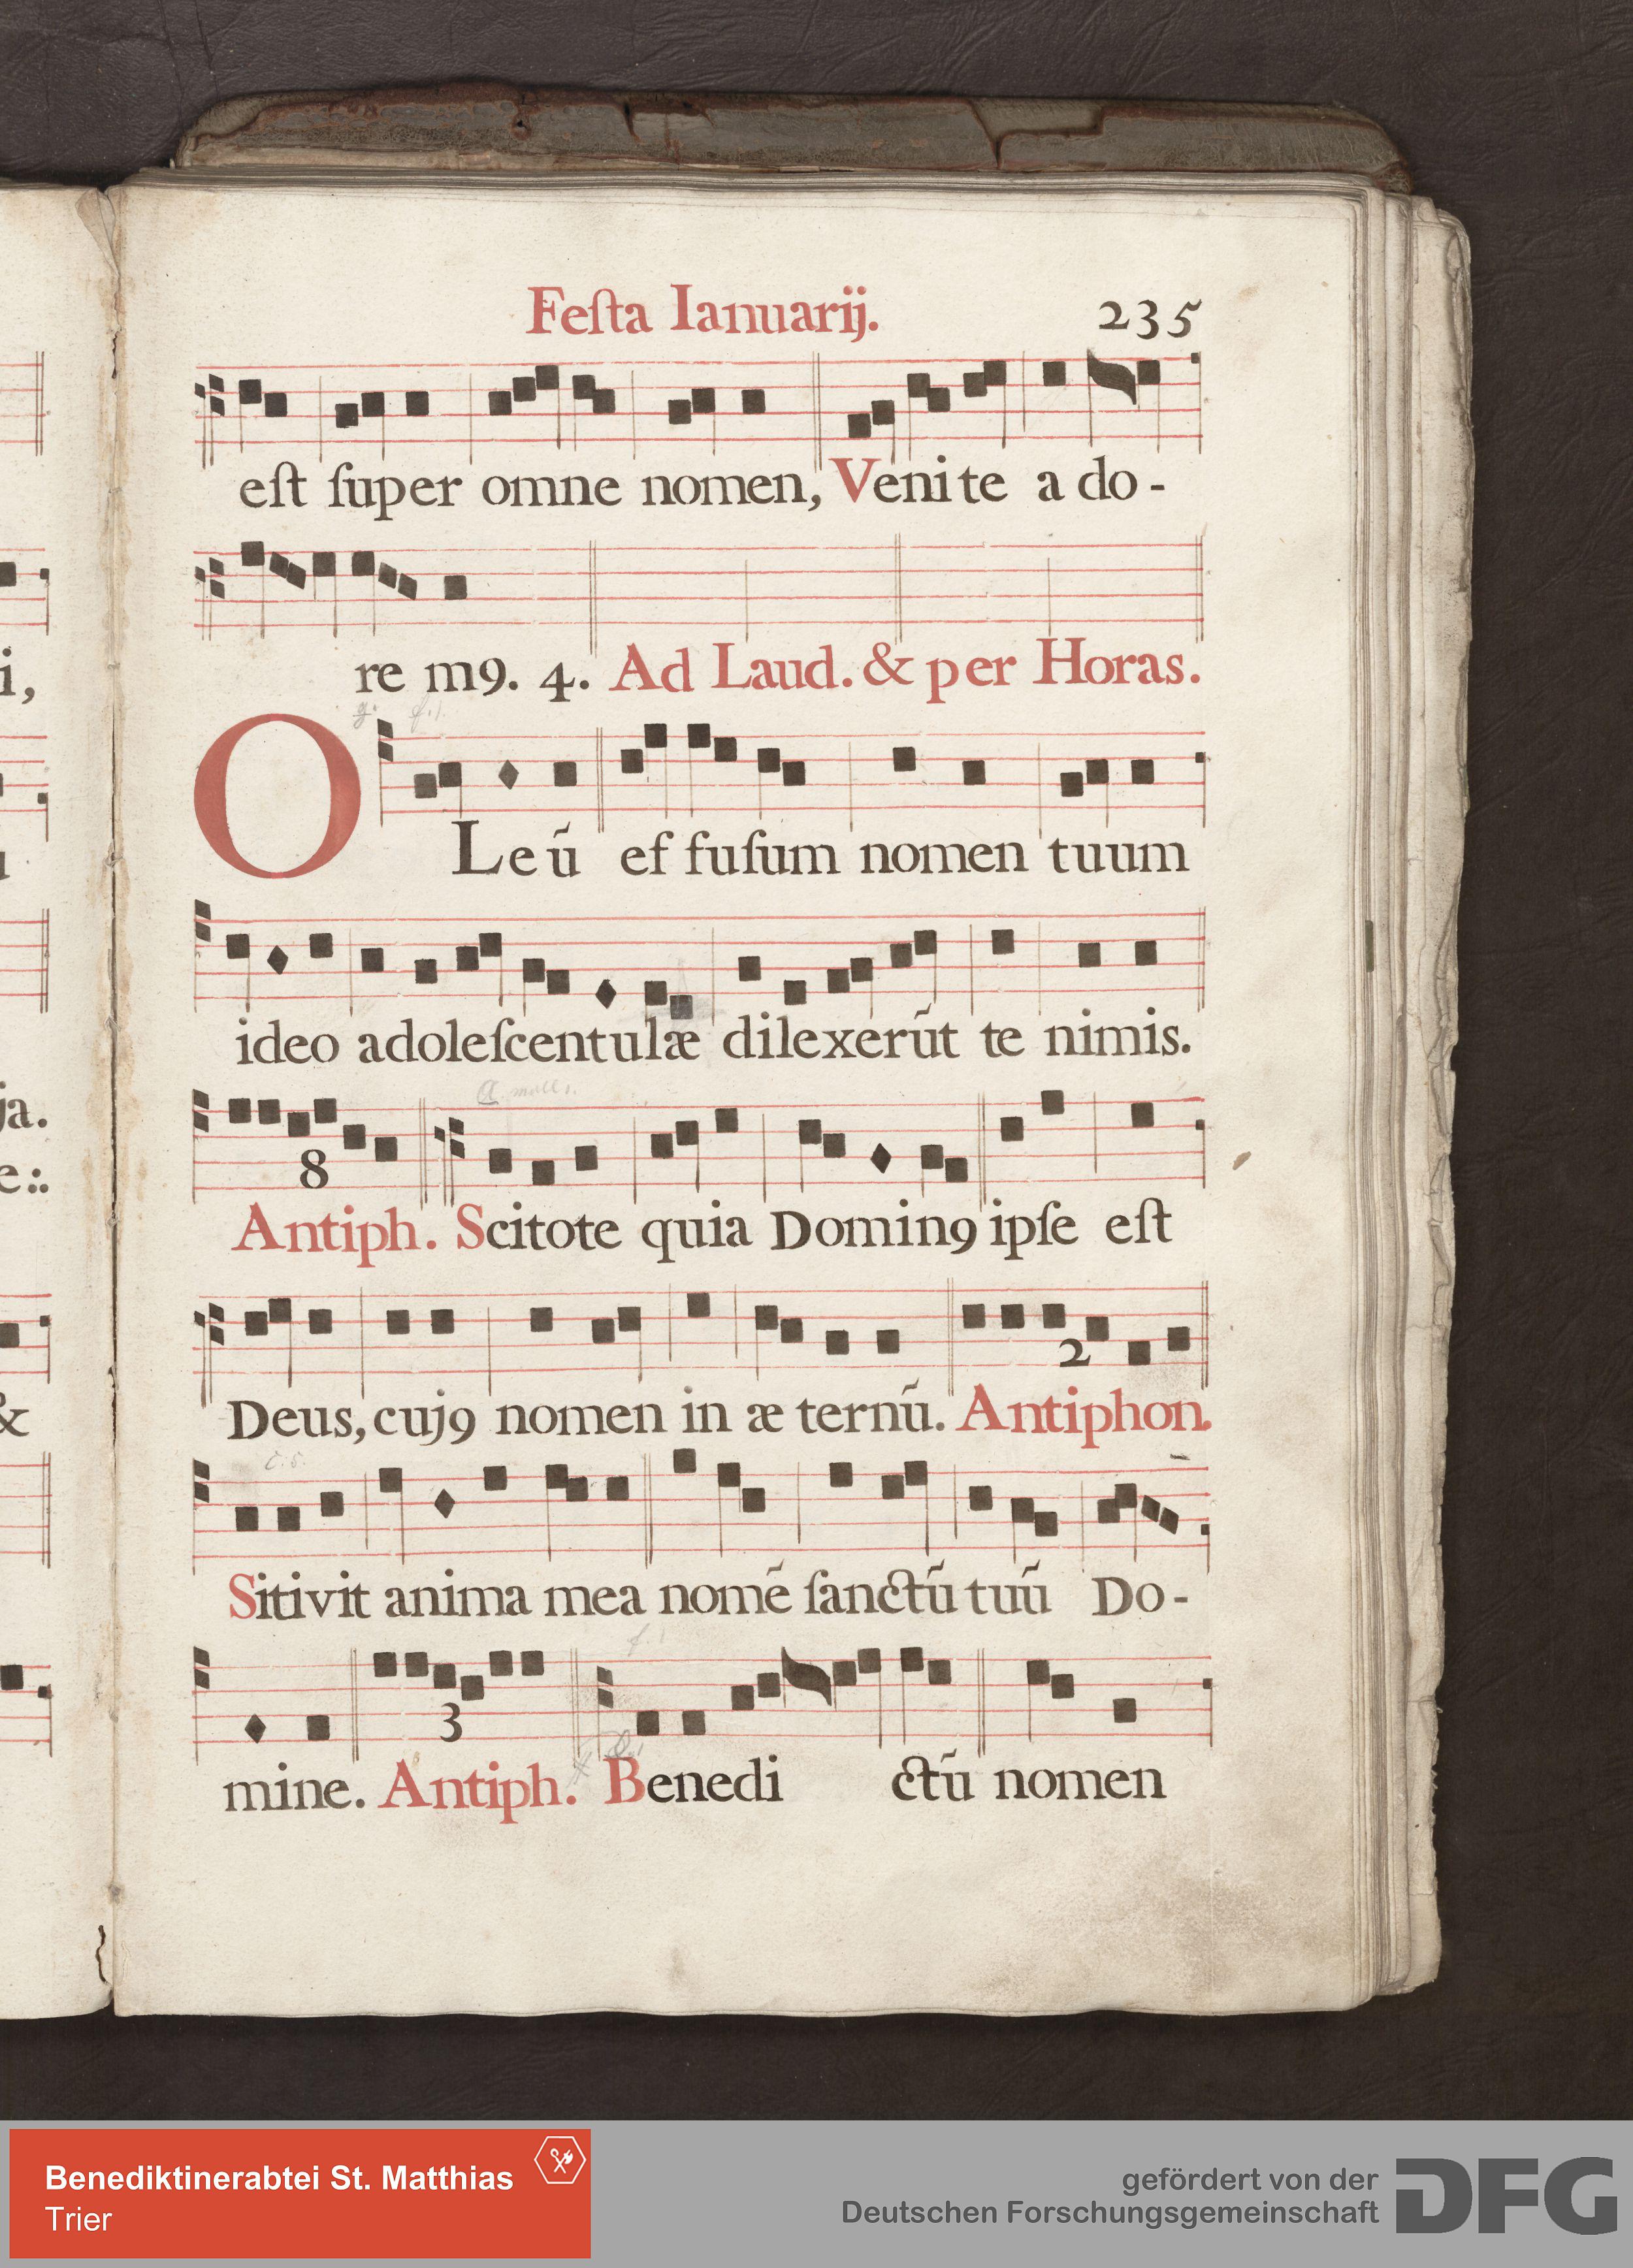 Feſta Ianuarij. 235
eſt ſuper omne nomen, Venite ado-
re m9. 4. Ad Laud. & per Horas.
g. f.
OLeũ effuſum nomen tuum
ideo adoleſcentulæ dilexerũt te nimis.
a moll
8
Antiph. Scitote quia Domin9 ipſe eſt
2
Deus, cuj9 nomen in æternũ. Antiphon.
Sitivit anima mea nomẽ ſanctũ tuũ Do-
3
mine. Antiph. Benedictũ nomen
i,
ja.
e:.
&
Benediktinerabtei St. Matthias
Trier
gefördert von der
Deutschen Forschungsgemeinschaft
DFG